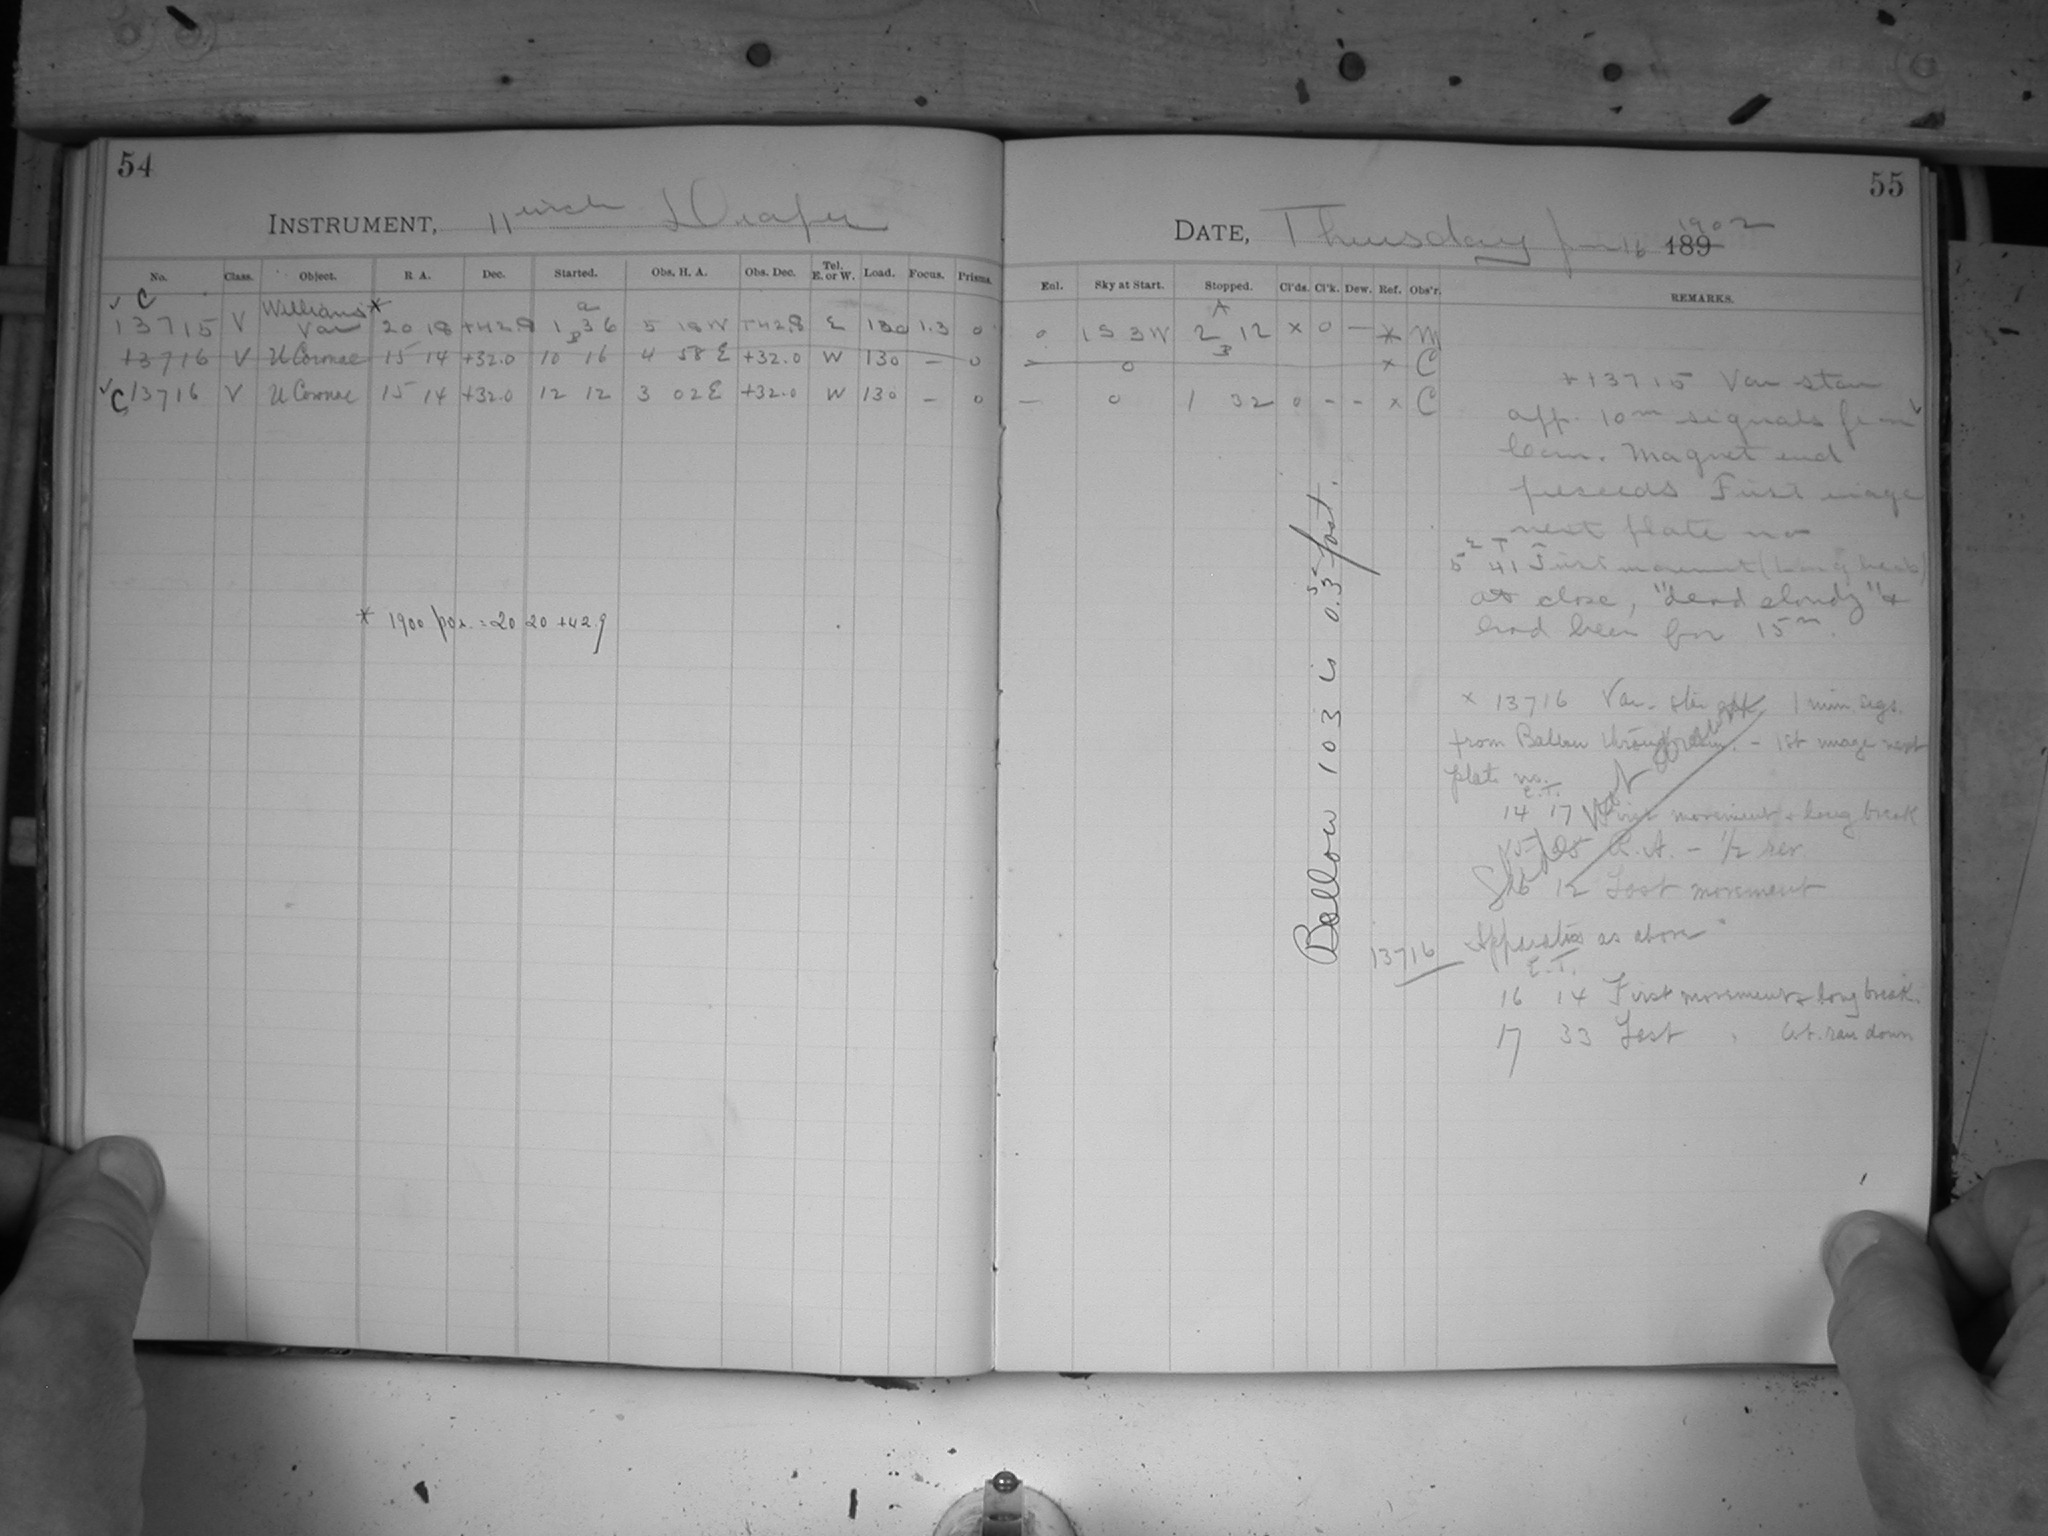 54
INSTRUMENT, 11 inch Draper
No. Class. Object. R A. Dec. Started. Obs. H. A. Obs. Dec. Tel. E. or W. Load. Focus. Prisms.
✓ C Williams * a
13715 V Var 20 18 +42.8 1 36 5 18 W +42.8 E 130 1.3 0
B
13716 V U Coronae 15 14 +32.0 10 16 4 58 E +32.0 W 130 – 0
✓ C 13716 V U Coronae 15 14 +32.0 12 12 3 02 E +32.0 W 130 – 0
* 1900 pos. = 20 20 +42.9
55
DATE, Thursday Jan 16 1902 189
Enl. Sky at Start. Stopped. Cl'ds. Cl'k. Dew. Ref. Obs'r. REMARKS.
A
0 1S 3W 2 12 x 0 – * M
B
– 0 x C
– 0 1 32 0 – – x C
* 13715 Var star
app. 10m signals from
Cam. Magnet end
preceeds First image
next plate no
E T
5 41 First movement (long break)
at close, "dead cloudy" &
had been for 15m.
x 13716 Var. star app. 1 min. sigs.
from Ballou through – 1st image next
plate no.
E.T.
14 17 First movement & long break
R.A. – 1/2 rev
16 12 Last movement
13716 Apparatus as above
E.T.
16 14 First movement & long break.
17 33 Last " Wt. ran down
Ballou 103 is 0.3s fast.